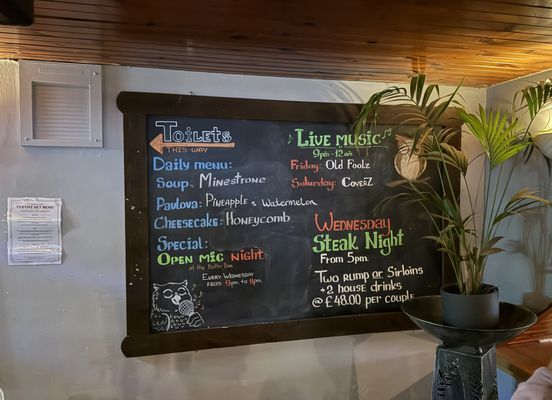 FESTIVE SET MENU
Toilets
THIS WAY
Daily menu:
Soup: Minestrone
Pavlova: Pineapple & Watermelon
Cheesecake: Honeycomb
Special:
Open Mic Night
At the Bothi Bar
Every Wednesday
from 9pm to 11pm.
Live Music
9pm-12am
Friday: Old Foolz
Saturday: CoverZ
Wednesday
Steak Night
From 5pm.
Two rump or Sirloins
+2 house drinks
@ £48.00 per couple